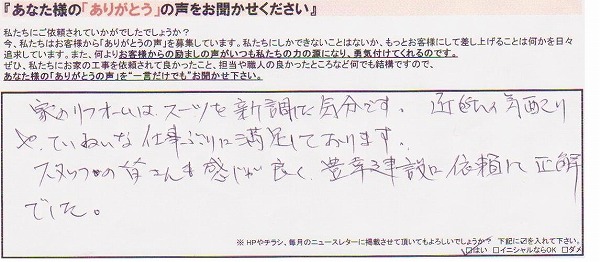 『あなた様の「ありがとう」の声をお聞かせください』
私たちにご依頼されていかがでしたでしょうか?
今、私たちはお客様から「ありがとうの声」を募集しています。私たちにしかできないことはないか、もっとお客様にして差し上げることは何かを日々
追求しています。また、何よりお客様からの励ましの声がいつも私たちの力の源になり、勇気付けてくれるのです。
ぜひ、私たちにお家の工事を依頼されて良かったこと、担当や職人の良かったところなど何でも結構ですので、
あなた様の「ありがとうの声」を"一言だけでも"お聞かせ下さい。
家のリフォームは、スーツを新調した気分です。 近所への気配り
や、ていねいな仕事ぶりに満足しております。
スタッフの皆さんも感じが良く、豊幸建設に依頼して正解
でした。
※ HPやチラシ、毎月のニュースレターに掲載させて頂いてもよろしいでしょうか? 下記に☑を入れて下さい。
☑はい ☐イニシャルならOK ☐ダメ